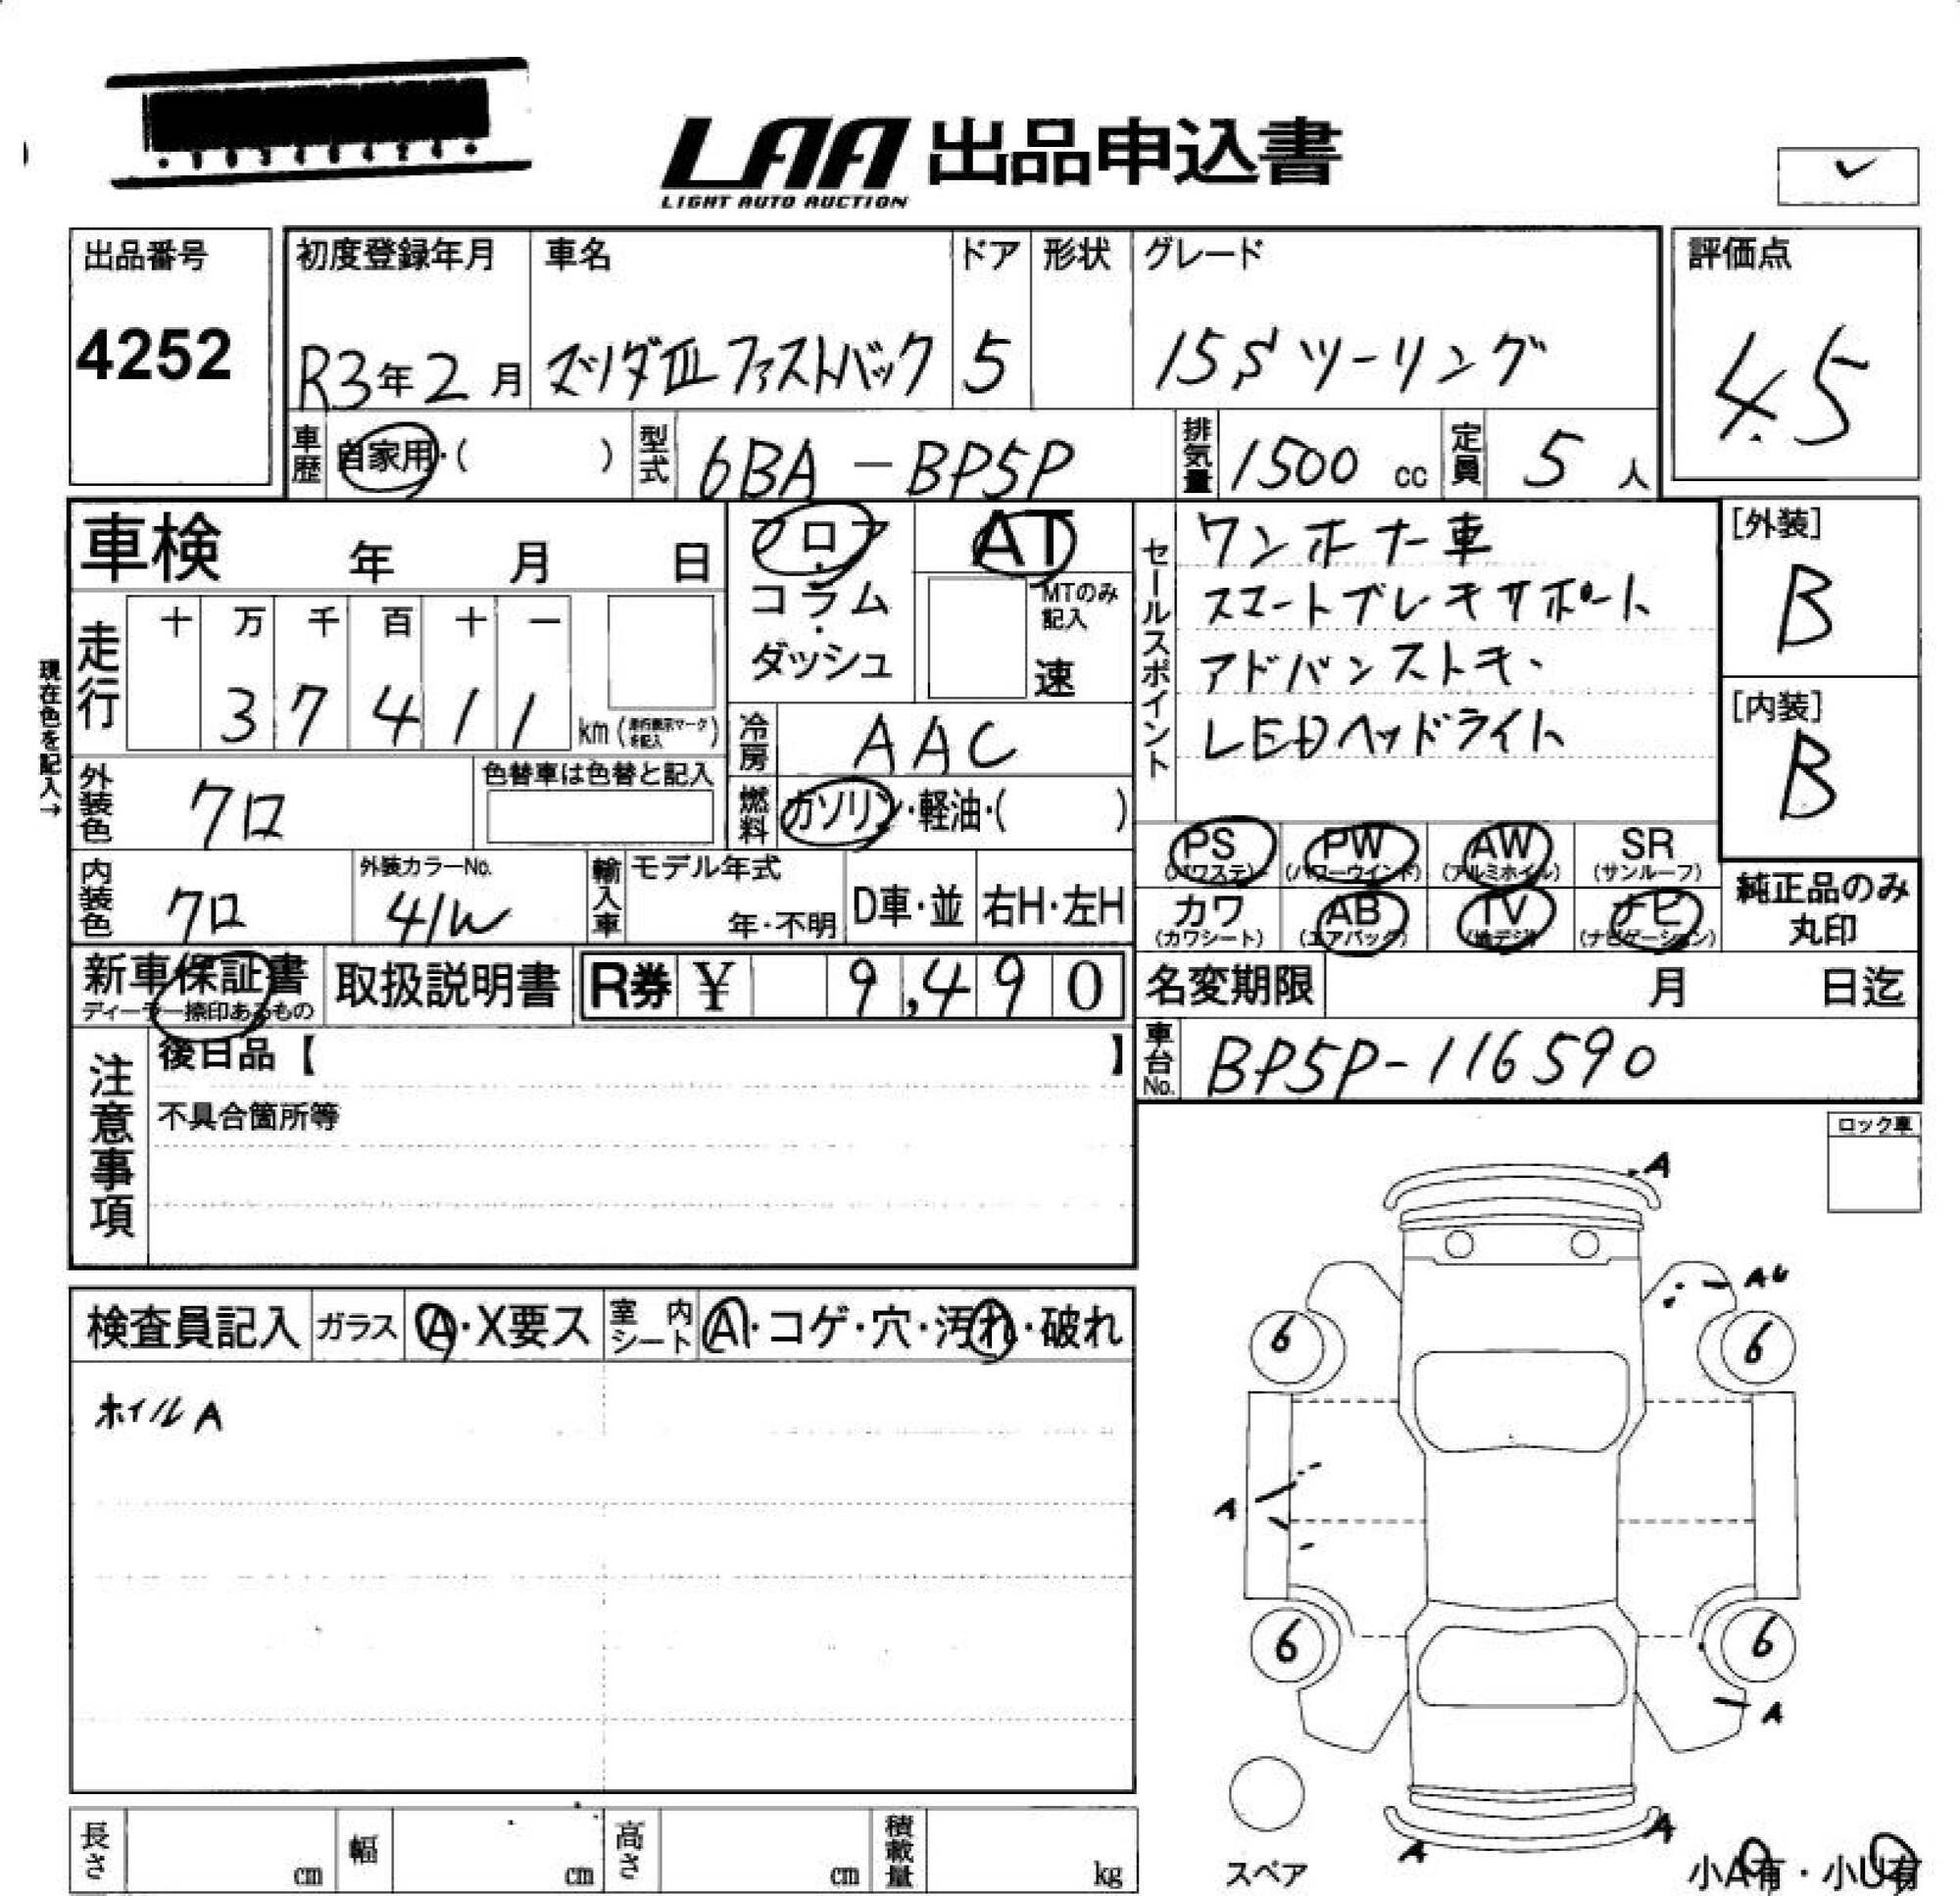 LAA 出品申込書
LIGHT AUTO AUCTION
✓
出品番号
4252
初度登録年月
R3年2月
車名
マツダⅢ ファストバック
ドア
5
形状
グレード
15S ツーリング
評価点
4.5
車歴
自家用・( )
型式
6BA - BP5P
排気量
1500 cc
定員
5 人
車検 年 月 日
フロア・コラム・ダッシュ
AT
MTのみ記入
速
セールスポイント
ワンホナー車
スマートブレキサポート
アドバンストキー
LEDヘッドライト
[外装]
B
[内装]
B
現在色を記入→
走行
十 万 千 百 十 一
3 7 4 1 1
km (走行表示マークを記入)
冷房
AAC
外装色
クロ
色替車は色替と記入
燃料
ガソリン・軽油・( )
PS (パワステ)
PW (パワーウインド)
AW (アルミホイル)
SR (サンルーフ)
カワ (カワシート)
AB (エアバッグ)
TV (地デジ)
ナビ (ナビゲーション)
純正品のみ丸印
内装色
クロ
外装カラーNo.
41W
輸入車
モデル年式
年・不明
D車・並
右H・左H
新車保証書
ディーラー捺印あるもの
取扱説明書
R券 ¥ 9,490
名変期限 月 日迄
車台No.
BP5P-116590
注意事項
後日品【 】
不具合箇所等
ロック車
検査員記入
ガラス
A・X要ス
室内シート
A・コゲ・穴・汚れ・破れ
ホイルA
A
6
6
A
6
6
A
A
A
スペア
小A有・小U有
長さ cm
幅 cm
高さ cm
積載量 kg